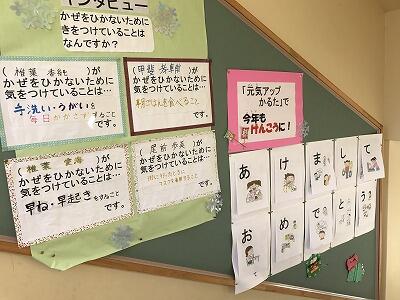 インタビュー
かぜをひかないために
きをつけていることは
なんですか?
( 椎葉 )が
かぜをひかないために
気をつけていることは…
手洗い・うがいを
毎日かかさずすること
です。
( 甲斐 )が
かぜをひかないために
気をつけていることは…
朝ごはんを食べること
です。
( 椎葉 )が
かぜをひかないために
気をつけていることは…
早ね・早起きをすること
です。
( 尾前 )が
かぜをひかないために
気をつけていることは…
マスクを着用すること
です。
「元気アップ
かるた」で
今年も
けんこうに!
あけまして
おめでとう